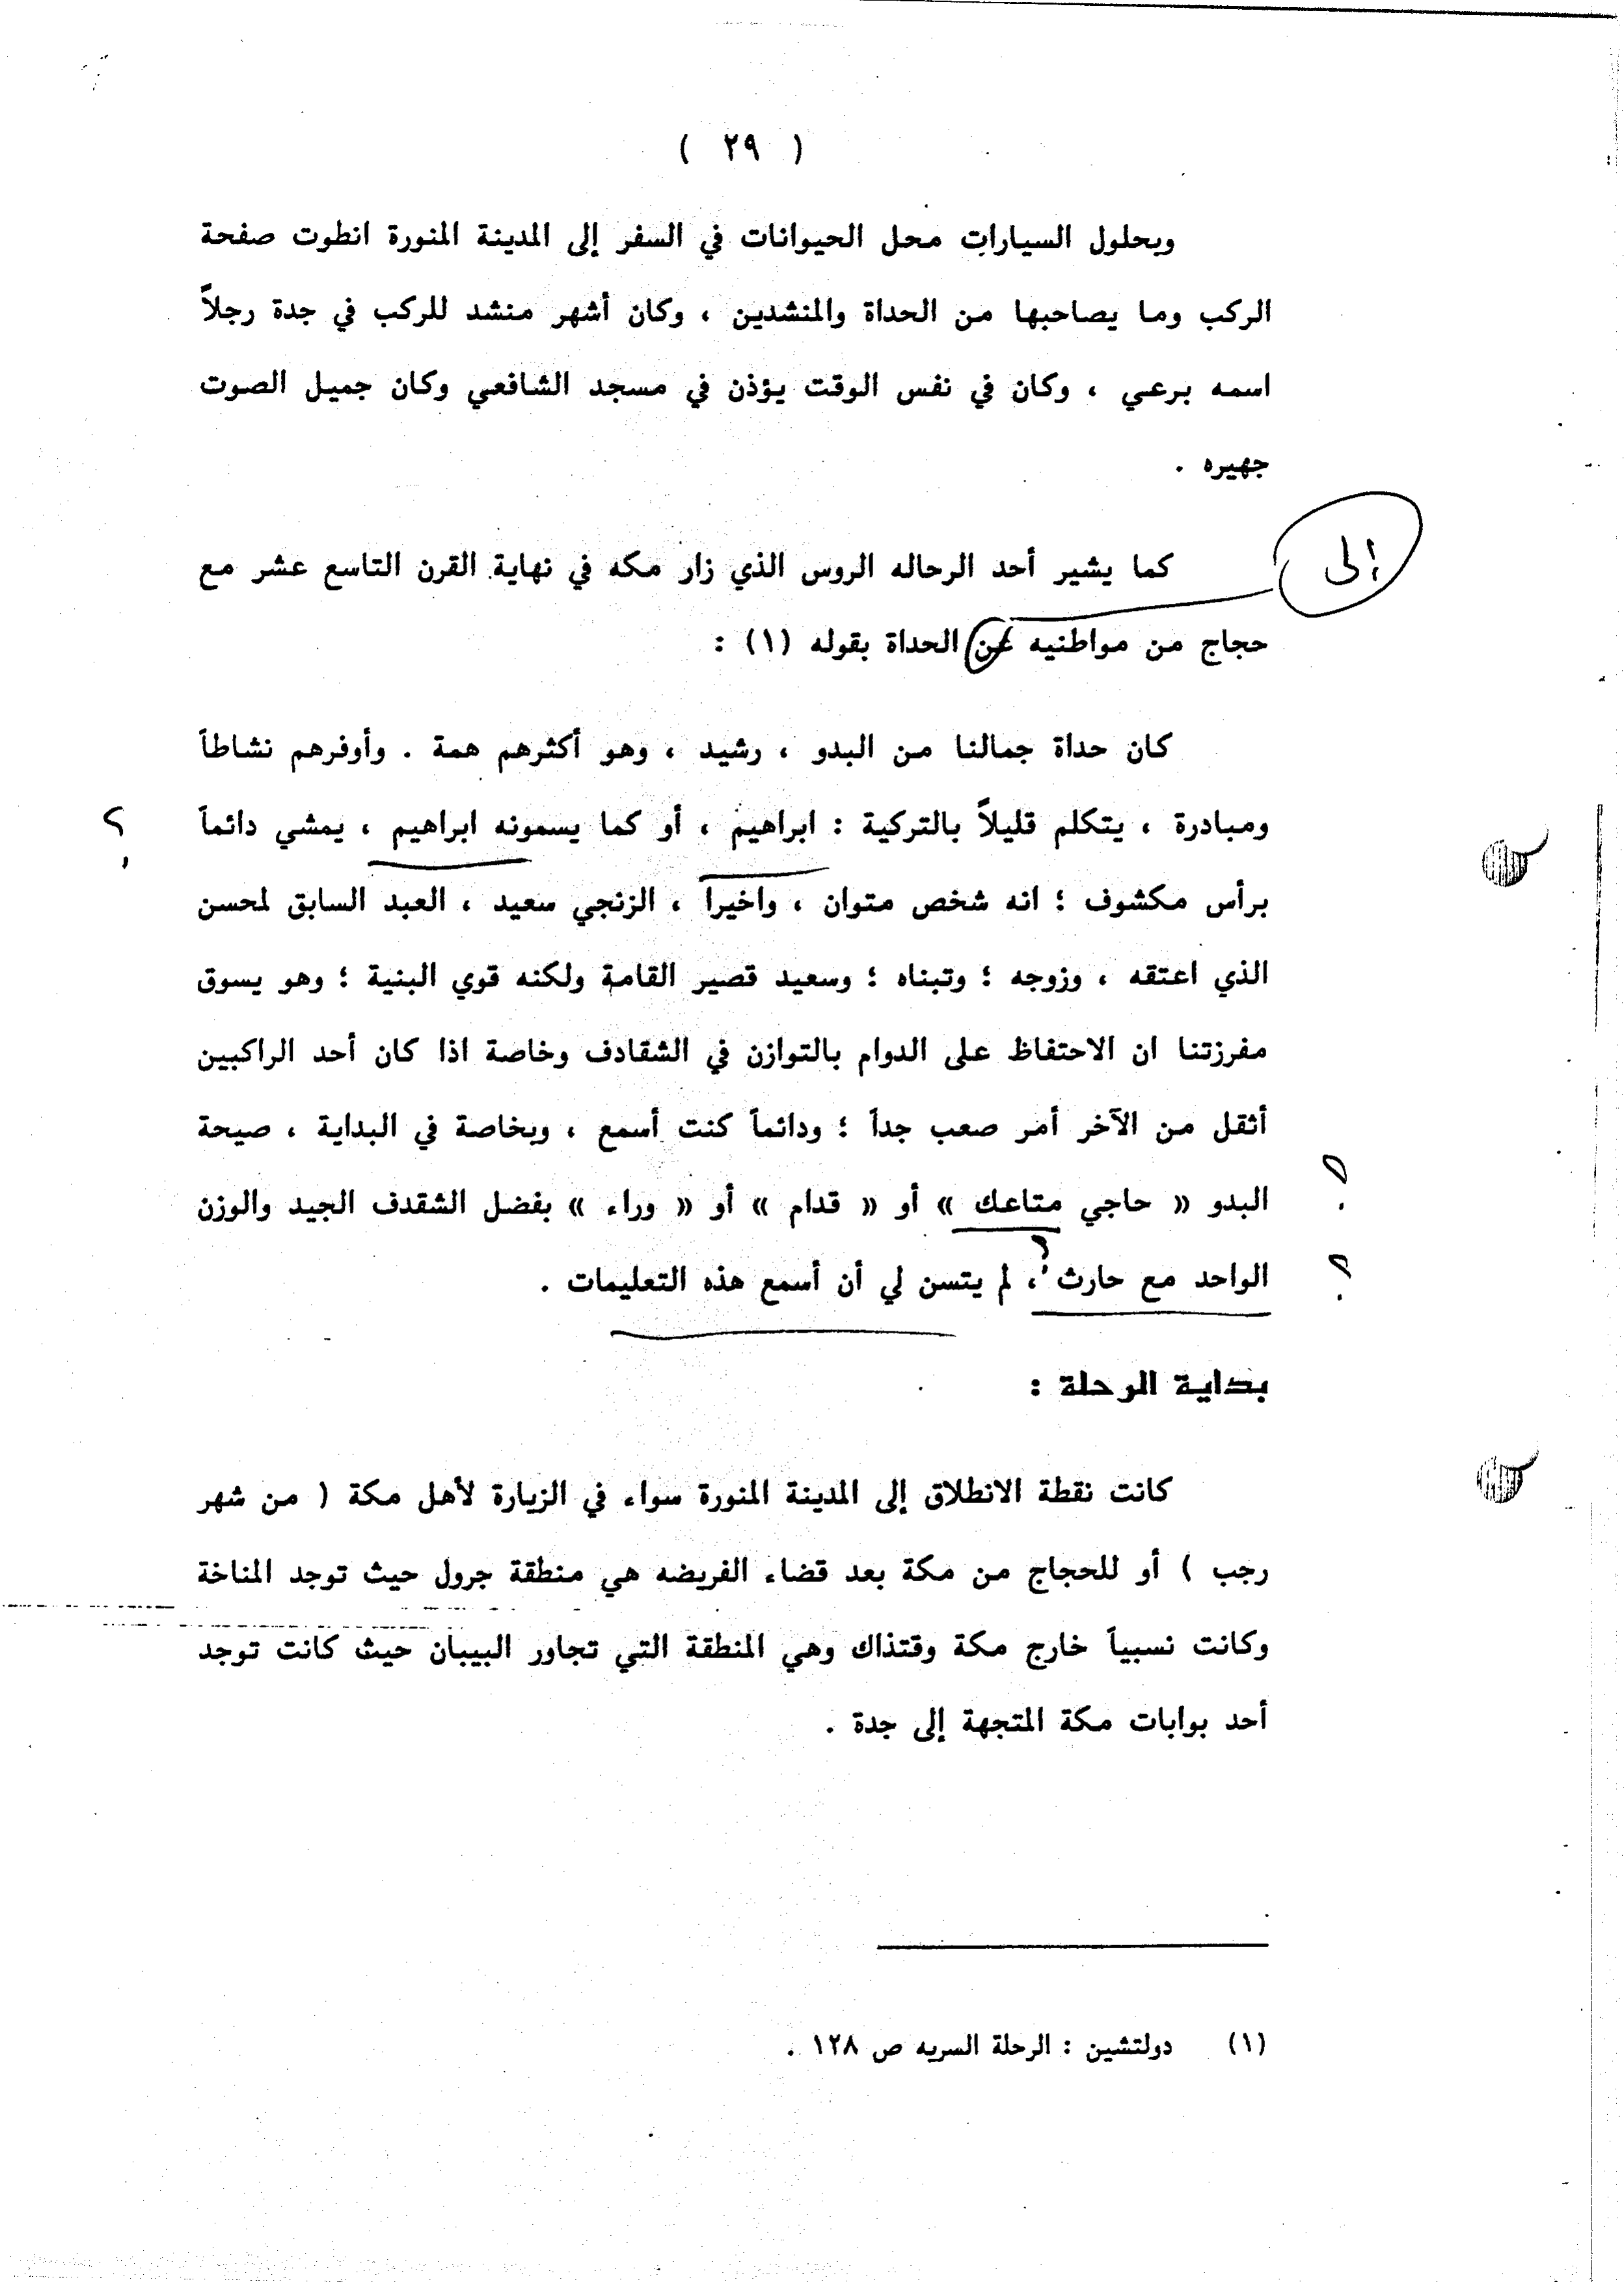 ( ٢٩ )
وبحلول السيارات محل الحيوانات في السفر إلى المدينة المنورة انطوت صفحة
الركب وما يصاحبها من الحداة والمنشدين ، وكان أشهر منشد للركب في جدة رجلاً
اسمه برعي ، وكان في نفس الوقت يؤذن في مسجد الشافعي وكان جميل الصوت
جهيره .
إلى
كما يشير أحد الرحاله الروس الذي زار مكه في نهاية القرن التاسع عشر مع
حجاج من مواطنيه عن الحداة بقوله (١) :
كان حداة جمالنا من البدو ، رشيد ، وهو أكثرهم همة . وأوفرهم نشاطاً
ومبادرة ، يتكلم قليلاً بالتركية : ابراهيم ، أو كما يسمونه ابراهيم ، يمشي دائماً
؟
برأس مكشوف ؛ انه شخص متوان ، واخيراً ، الزنجي سعيد ، العبد السابق لمحسن
الذي اعتقه ، وزوجه ؛ وتبناه ؛ وسعيد قصير القامة ولكنه قوي البنية ؛ وهو يسوق
مفرزتنا ان الاحتفاظ على الدوام بالتوازن في الشقادف وخاصة اذا كان أحد الراكبين
أثقل من الآخر أمر صعب جداً ؛ ودائماً كنت أسمع ، وبخاصة في البداية ، صيحة
؟
البدو « حاجي متاعك » أو « قدام » أو « وراء » بفضل الشقدف الجيد والوزن
؟
الواحد مع حارث ؟ ، لم يتسن لي أن أسمع هذه التعليمات .
بداية الرحلة :
كانت نقطة الانطلاق إلى المدينة المنورة سواء في الزيارة لأهل مكة ( من شهر
رجب ) أو للحجاج من مكة بعد قضاء الفريضه هي منطقة جرول حيث توجد المناخة
وكانت نسبياً خارج مكة وقتذاك وهي المنطقة التي تجاور البيبان حيث كانت توجد
أحد بوابات مكة المتجهة إلى جدة .
(١) دولتشين : الرحلة السريه ص ١٢٨ .